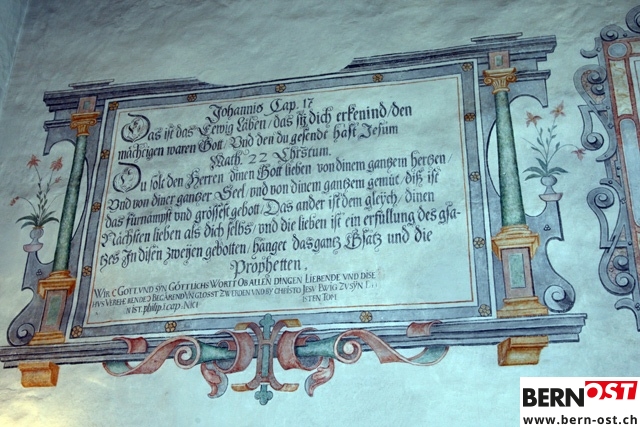 Johannis Cap. 17
Das ist das Eewig Läben / das sÿ dich erkenind / den
mächtigen waren Gott / Vnd den du gesendt hast Jesum
Math. 22 Chrstum.
Du solt den Herren dinen Gott lieben von dinem gantzem hertzen /
Vnd von diner gantzer Seel vnd von dinem gantzem gemüt / diß ist
das fürnämpst vnd grössest gebott / Das ander ist dem glÿch / dinen
Nächsten lieben als dich selbs / vnd die lieben ist ein erfüllung des gsa-
tzes Jn disen zweÿen gebotten / hanget das gantz Gsätz und die
Prophetten.
WIR GOTT VND SYN GÖTTLICHS WORTT OB ALLEN DINGEN LIEBENDE VND DISE
BEGÄREND VND CHRISTO JESV EWIG ZV SYN
IST. philip. 1 cap.
BERNOST
www.bern-ost.ch